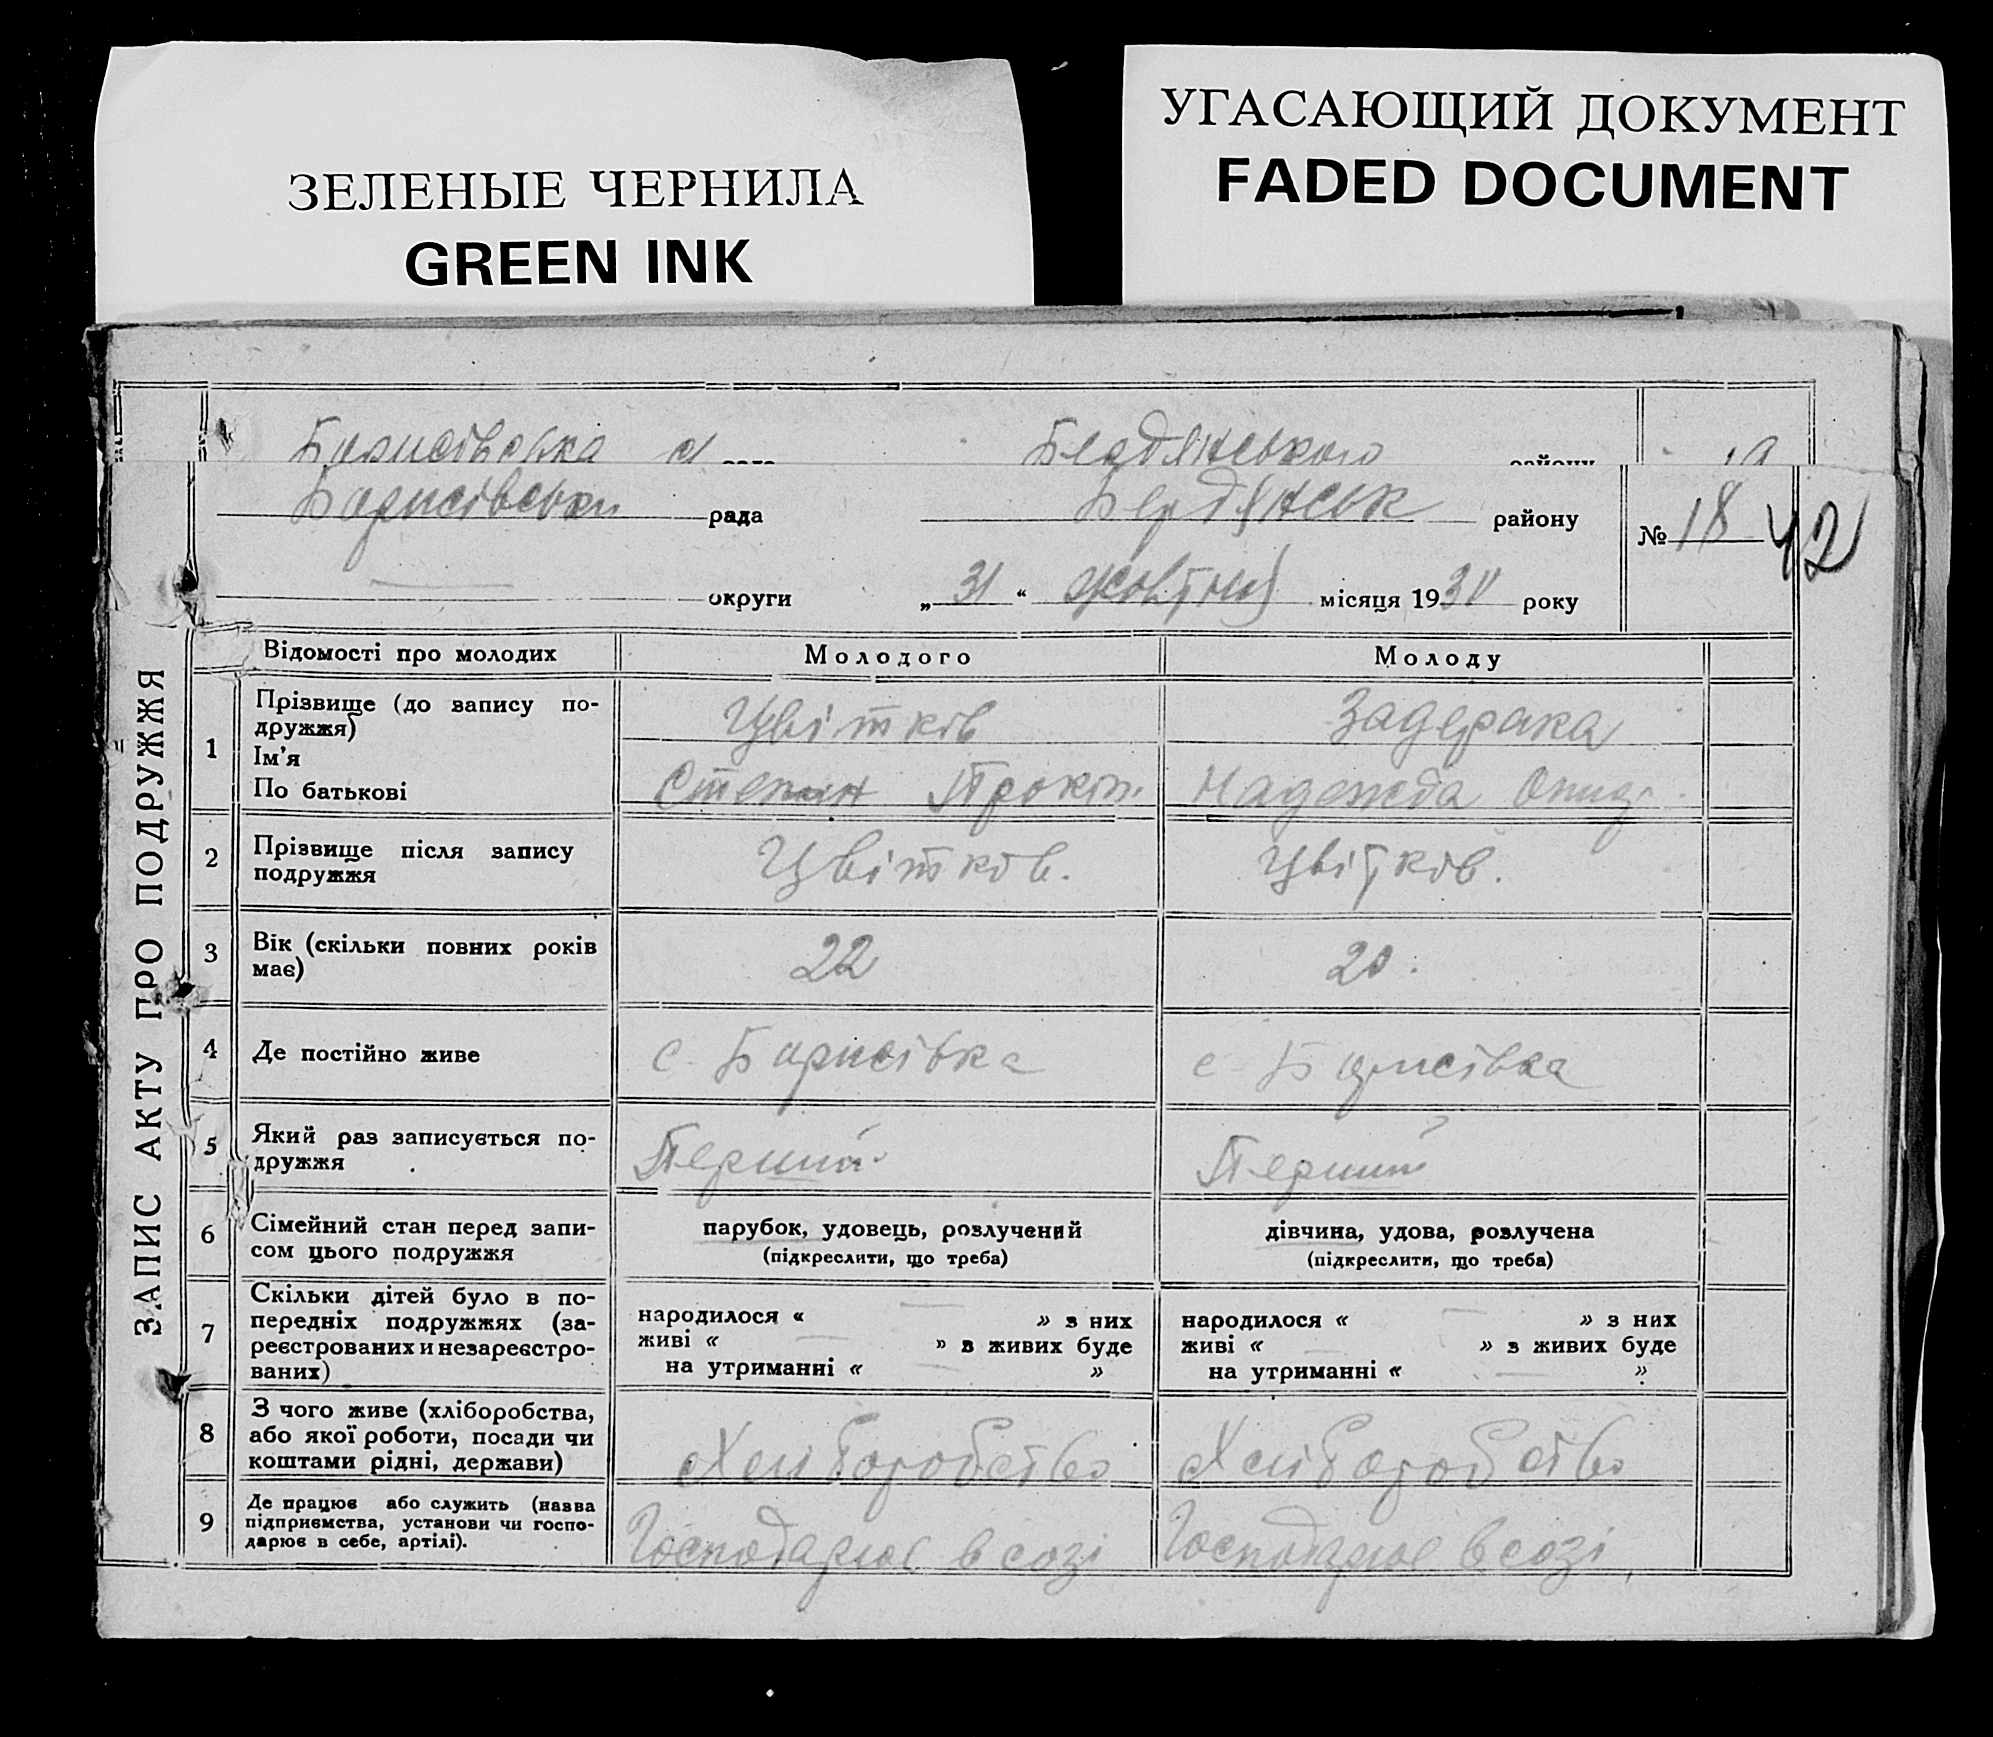 ЗЕЛЕНЫЕ ЧЕРНИЛА
GREEN INK
УГАСАЮЩИЙ ДОКУМЕНТ
FADED DOCUMENT
Борисівська с/ Бердянського району
Борисівськ рада Бердянськ району № 18 42
округи „ 31 “ жовтня місяця 1930 року
ЗАПИС АКТУ ПРО ПОДРУЖЖЯ
Відомості про молодих Молодого Молоду
1 Прізвище (до запису по-
дружжя) Цвітков Задерака
Ім'я
По батькові Степан Прокоп. Надежда
2 Прізвище після запису
подружжя Цвітков. Цвітков.
3 Вік (скільки повних років
має) 22 20.
4 Де постійно живе с. Борисівка с. Борисівка
5 Який раз записується по-
дружжя Перший Перший
6 Сімейний стан перед запи-
сом цього подружжя
парубок, удовець, розлучений
(підкреслити, що треба)
дівчина, удова, розлучена
(підкреслити, що треба)
7 Скільки дітей було в по-
передніх подружжях (за-
реєстрованих и незареєстро-
ваних)
народилося « — » з них
живі « — » з живих буде
на утриманні « — »
народилося « — » з них
живі « — » з живих буде
на утриманні « — »
8 З чого живе (хліборобства,
або якої роботи, посади чи
коштами рідні, держави)
Хліборобство Хліборобство
9 Де працює або служить (назва
підприємства, установи чи госпо-
дарює в себе, артілі).
Господарює в созі Господарює в созі